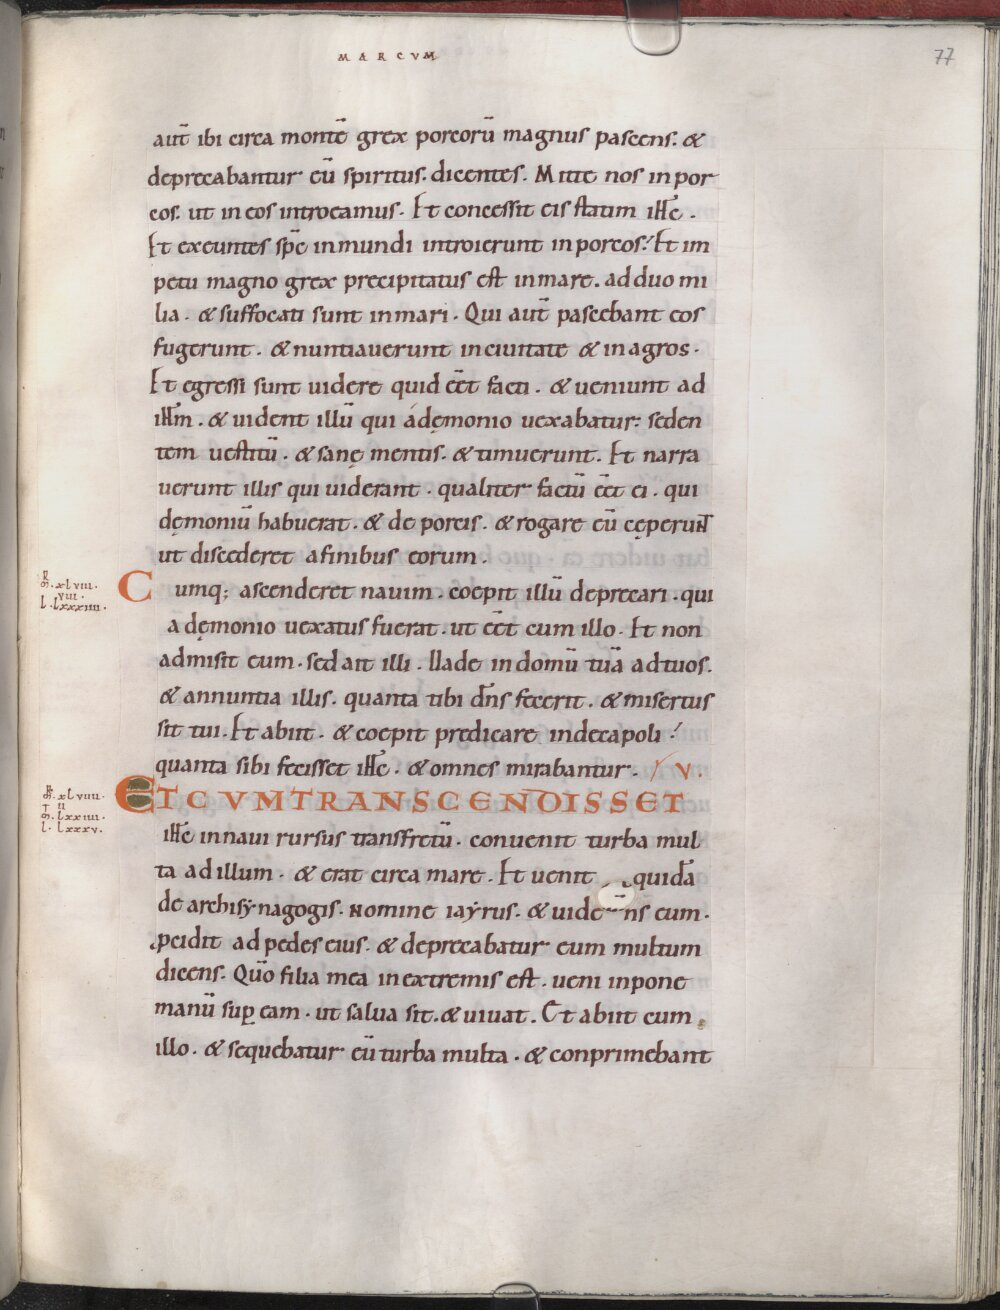 MARCVM
77
aut̄ ibi circa montē grex porcorū magnus pascens. &
deprecabantur eū spiritus. dicentes. Mitte nos in por
cos. ut in eos introeamus. Et concessit eis statim ihc̄.
Et exeuntes spc̄ inmundi introierunt in porcos. Et im
petu magno grex precipitatus est in mare. ad duo mi
lia. & suffocati sunt in mari. Qui aut̄ pascebant eos
fugerunt. & nuntiauerunt in ciuitatē & in agros.
Et egressi sunt uidere quid eēt facti. & ueniunt ad
ihm̄. & uident illū qui a demonio uexabatur: seden
tem uestitū. & sanę mentis. & timuerunt. Et narra
uerunt illis qui uiderant. qualiter factū eēt ei. qui
dęmoniū habuerat. & de porcis. & rogare eū cęperunt
ut discederet a finibus eorum.
Cumq; ascenderet nauim. coepit illū deprecari. qui
a dęmonio uexatus fuerat. ut eēt cum illo. Et non
admisit eum. sed ait illi. Uade in domū tuā ad tuos.
& annuntia illis. quanta tibi dn̄s fecerit. & misertus
sit tui. Et abiit. & coepit predicare in decapoli
quanta sibi fecisset ihc̄. & omnes mirabantur. V.
ET CVM TRANSCENDISSET
ihc̄ in naui rursus trans fretū. conuenit turba mul
ta ad illum. & erat circa mare. Et uenit quidā
de archisynagogis. nomine iaẏrus. & uidens eum.
pcidit ad pedes eius. & deprecabatur eum multum
dicens. Quō filia mea in extremis est. ueni inpone
manū sup̱ eam. ut salua sit. & uiuat. Et abiit cum
illo. & sequebatur eū turba multa. & conprimebant
xlviii.
viii.
l. lxxxiiii.
xlviiii.
ii
lxxiiii.
l. lxxxv.